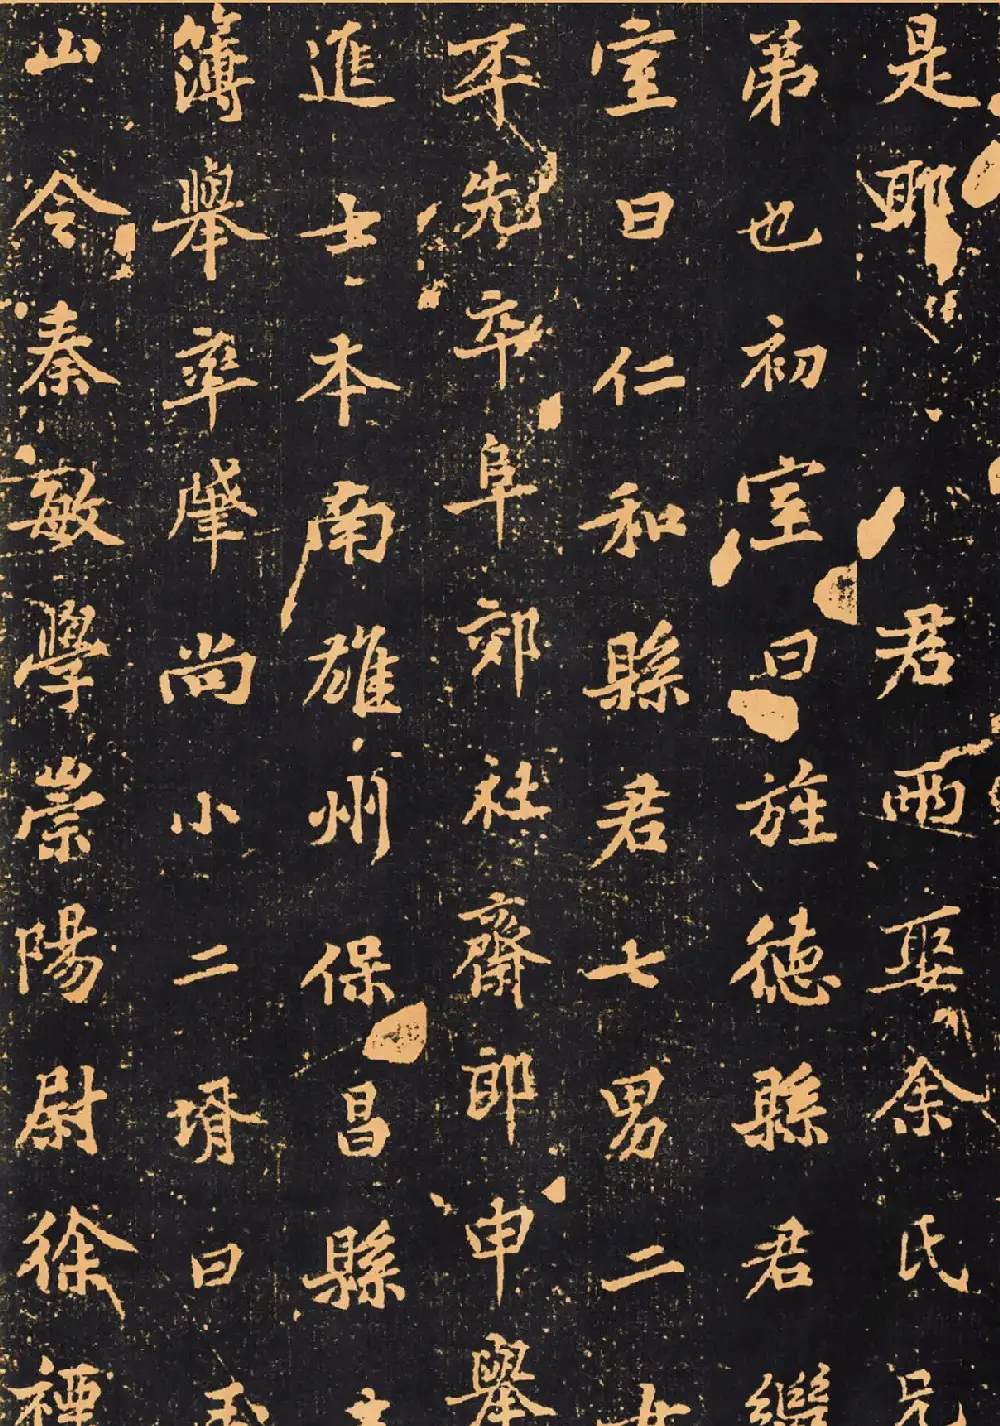 是耶君西娶余氏兄
弟也初室曰旌德縣君繼
室曰仁和縣君七男二女
丕先卒阜郊社齋郎申舉
進士本南雄州保昌縣主
簿舉率肈尚小二壻曰玉
山令秦敏學崇陽尉徐禋